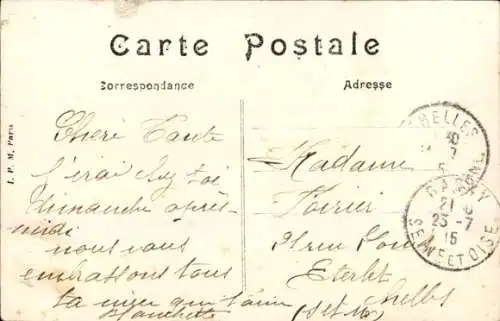 Carte Postale
Correspondance
Adresse
I. P. M. Paris
Cheri Tante
j'irai chez toi
dimanche après-
midi
nous vous
embrassons tous
ta niece qui t'aime
Blanchette
Madame
Poirier
rue
Chelles
(Set M)
CHELLES
GAGNY
21
23-7
15
SEINE ET OISE